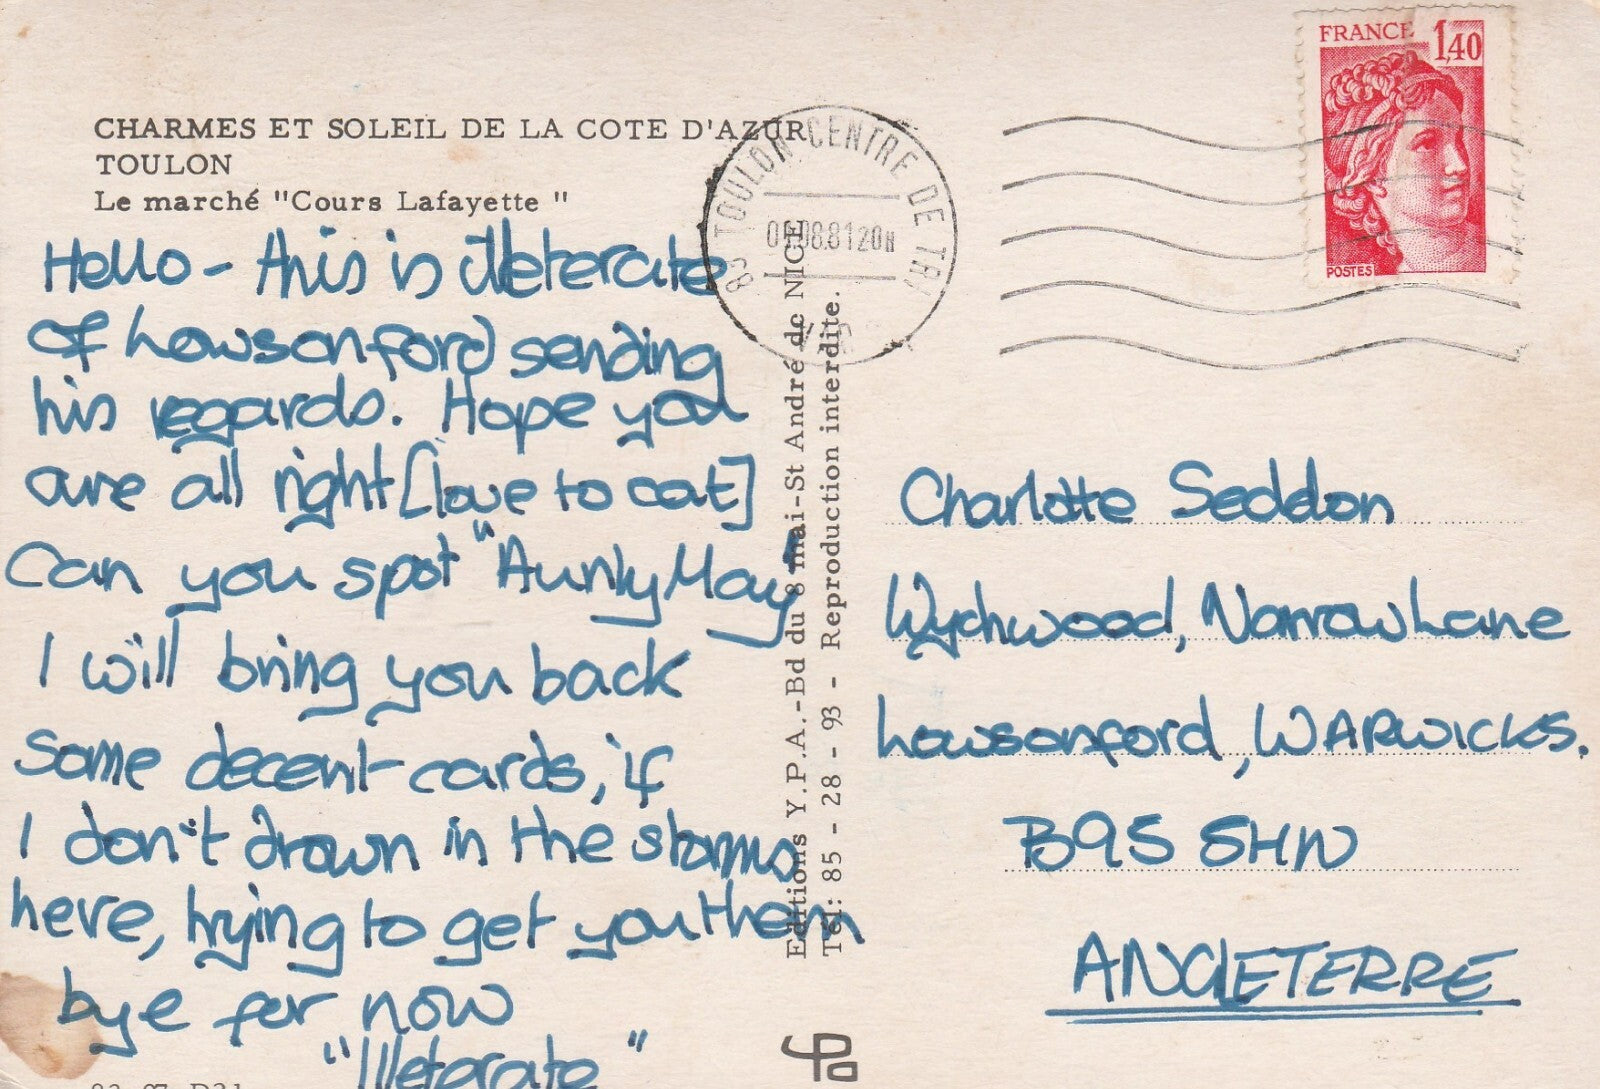 CHARMES ET SOLEIL DE LA COTE D'AZUR
TOULON
Le marché "Cours Lafayette"
Hello - this is illeterate
of Lowsonford sending
his regards. Hope you
are all right [love to cat]
Can you spot "Aunty May"
I will bring you back
some decent cards, if
I don't drown in the storms
here, trying to get you them
bye for now
"Illeterate"
Editions Y.P.A.-Bd du 8 mai-St André de NICE
Tél: 85 - 28 - 93 - Reproduction interdite.
83 TOULON CENTRE DE TRI
08.81 20H
VAR
FRANCE 1,40
POSTES
Charlotte Seddon
Wychwood, Narrow Lane
Lowsonford, WARWICKS.
B95 5HN
ANGLETERRE